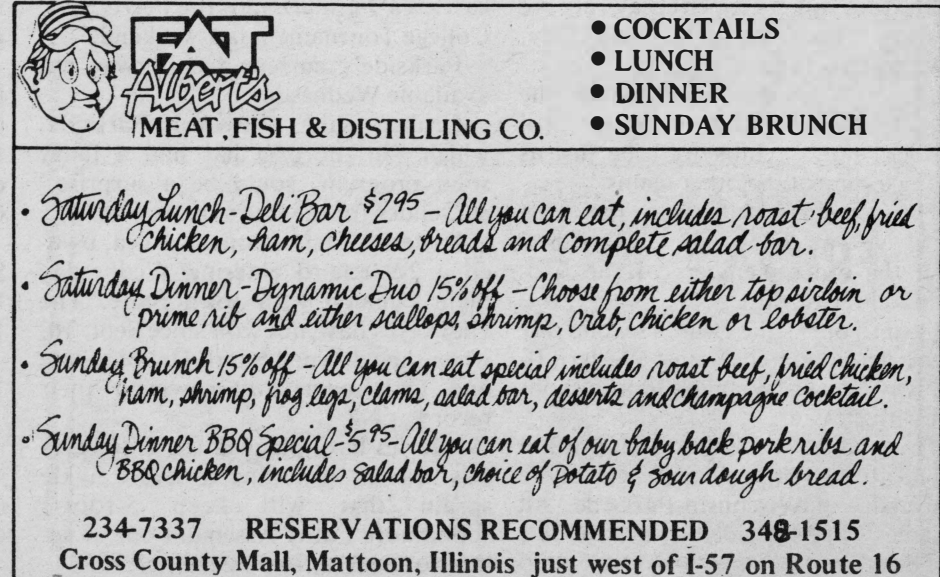 FAT
Albert's
MEAT, FISH & DISTILLING CO.
• COCKTAILS
• LUNCH
• DINNER
• SUNDAY BRUNCH
• Saturday Lunch-Deli Bar $2.95 - All you can eat, includes roast beef, fried
chicken, ham, cheeses, breads and complete salad bar.
• Saturday Dinner-Dynamic Duo 15% off - Choose from either top sirloin or
prime rib and either scallops, shrimp, crab, chicken or lobster.
• Sunday Brunch 15% off - All you can eat special includes roast beef, fried chicken,
ham, shrimp, frog legs, clams, salad bar, desserts and champagne cocktail.
• Sunday Dinner BBQ Special-$5.95-All you can eat of our baby back pork ribs and
BBQ chicken, includes salad bar, choice of potato & sour dough bread.
234-7337 RESERVATIONS RECOMMENDED 348-1515
Cross County Mall, Mattoon, Illinois just west of I-57 on Route 16